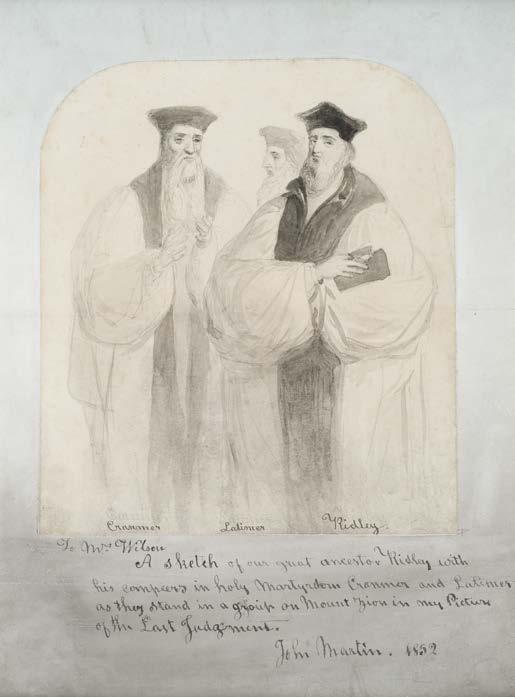 Cranmer Latimer Ridley.
To Mrs Wilson
A sketch of our great ancestor Ridley with
his compeers in holy Martyrdom Cranmer and Latimer
as they stand in a group on Mount Zion in my Picture
of the Last Judgment.
John Martin. 1852